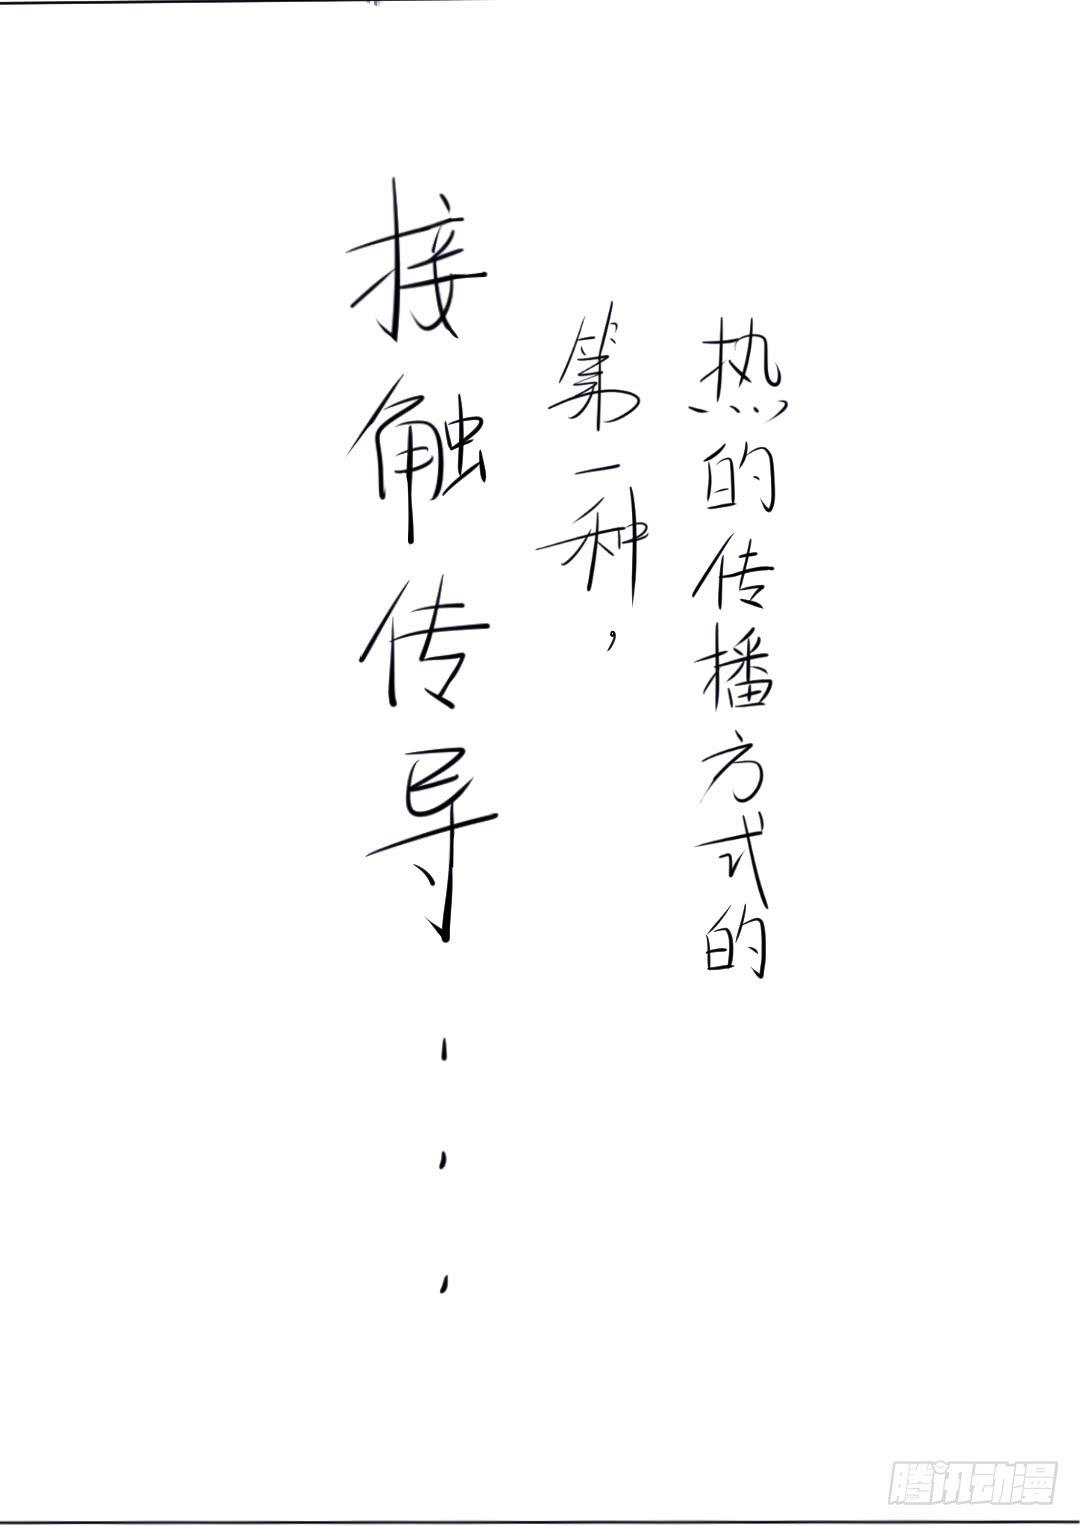 热的传播方式的
第一种，
接触传导...
腾讯动漫